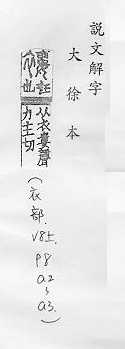 説文解字
大徐本
衽也
从衣婁聲
力主切
(衣部. V8上. P8 a2~a3.)